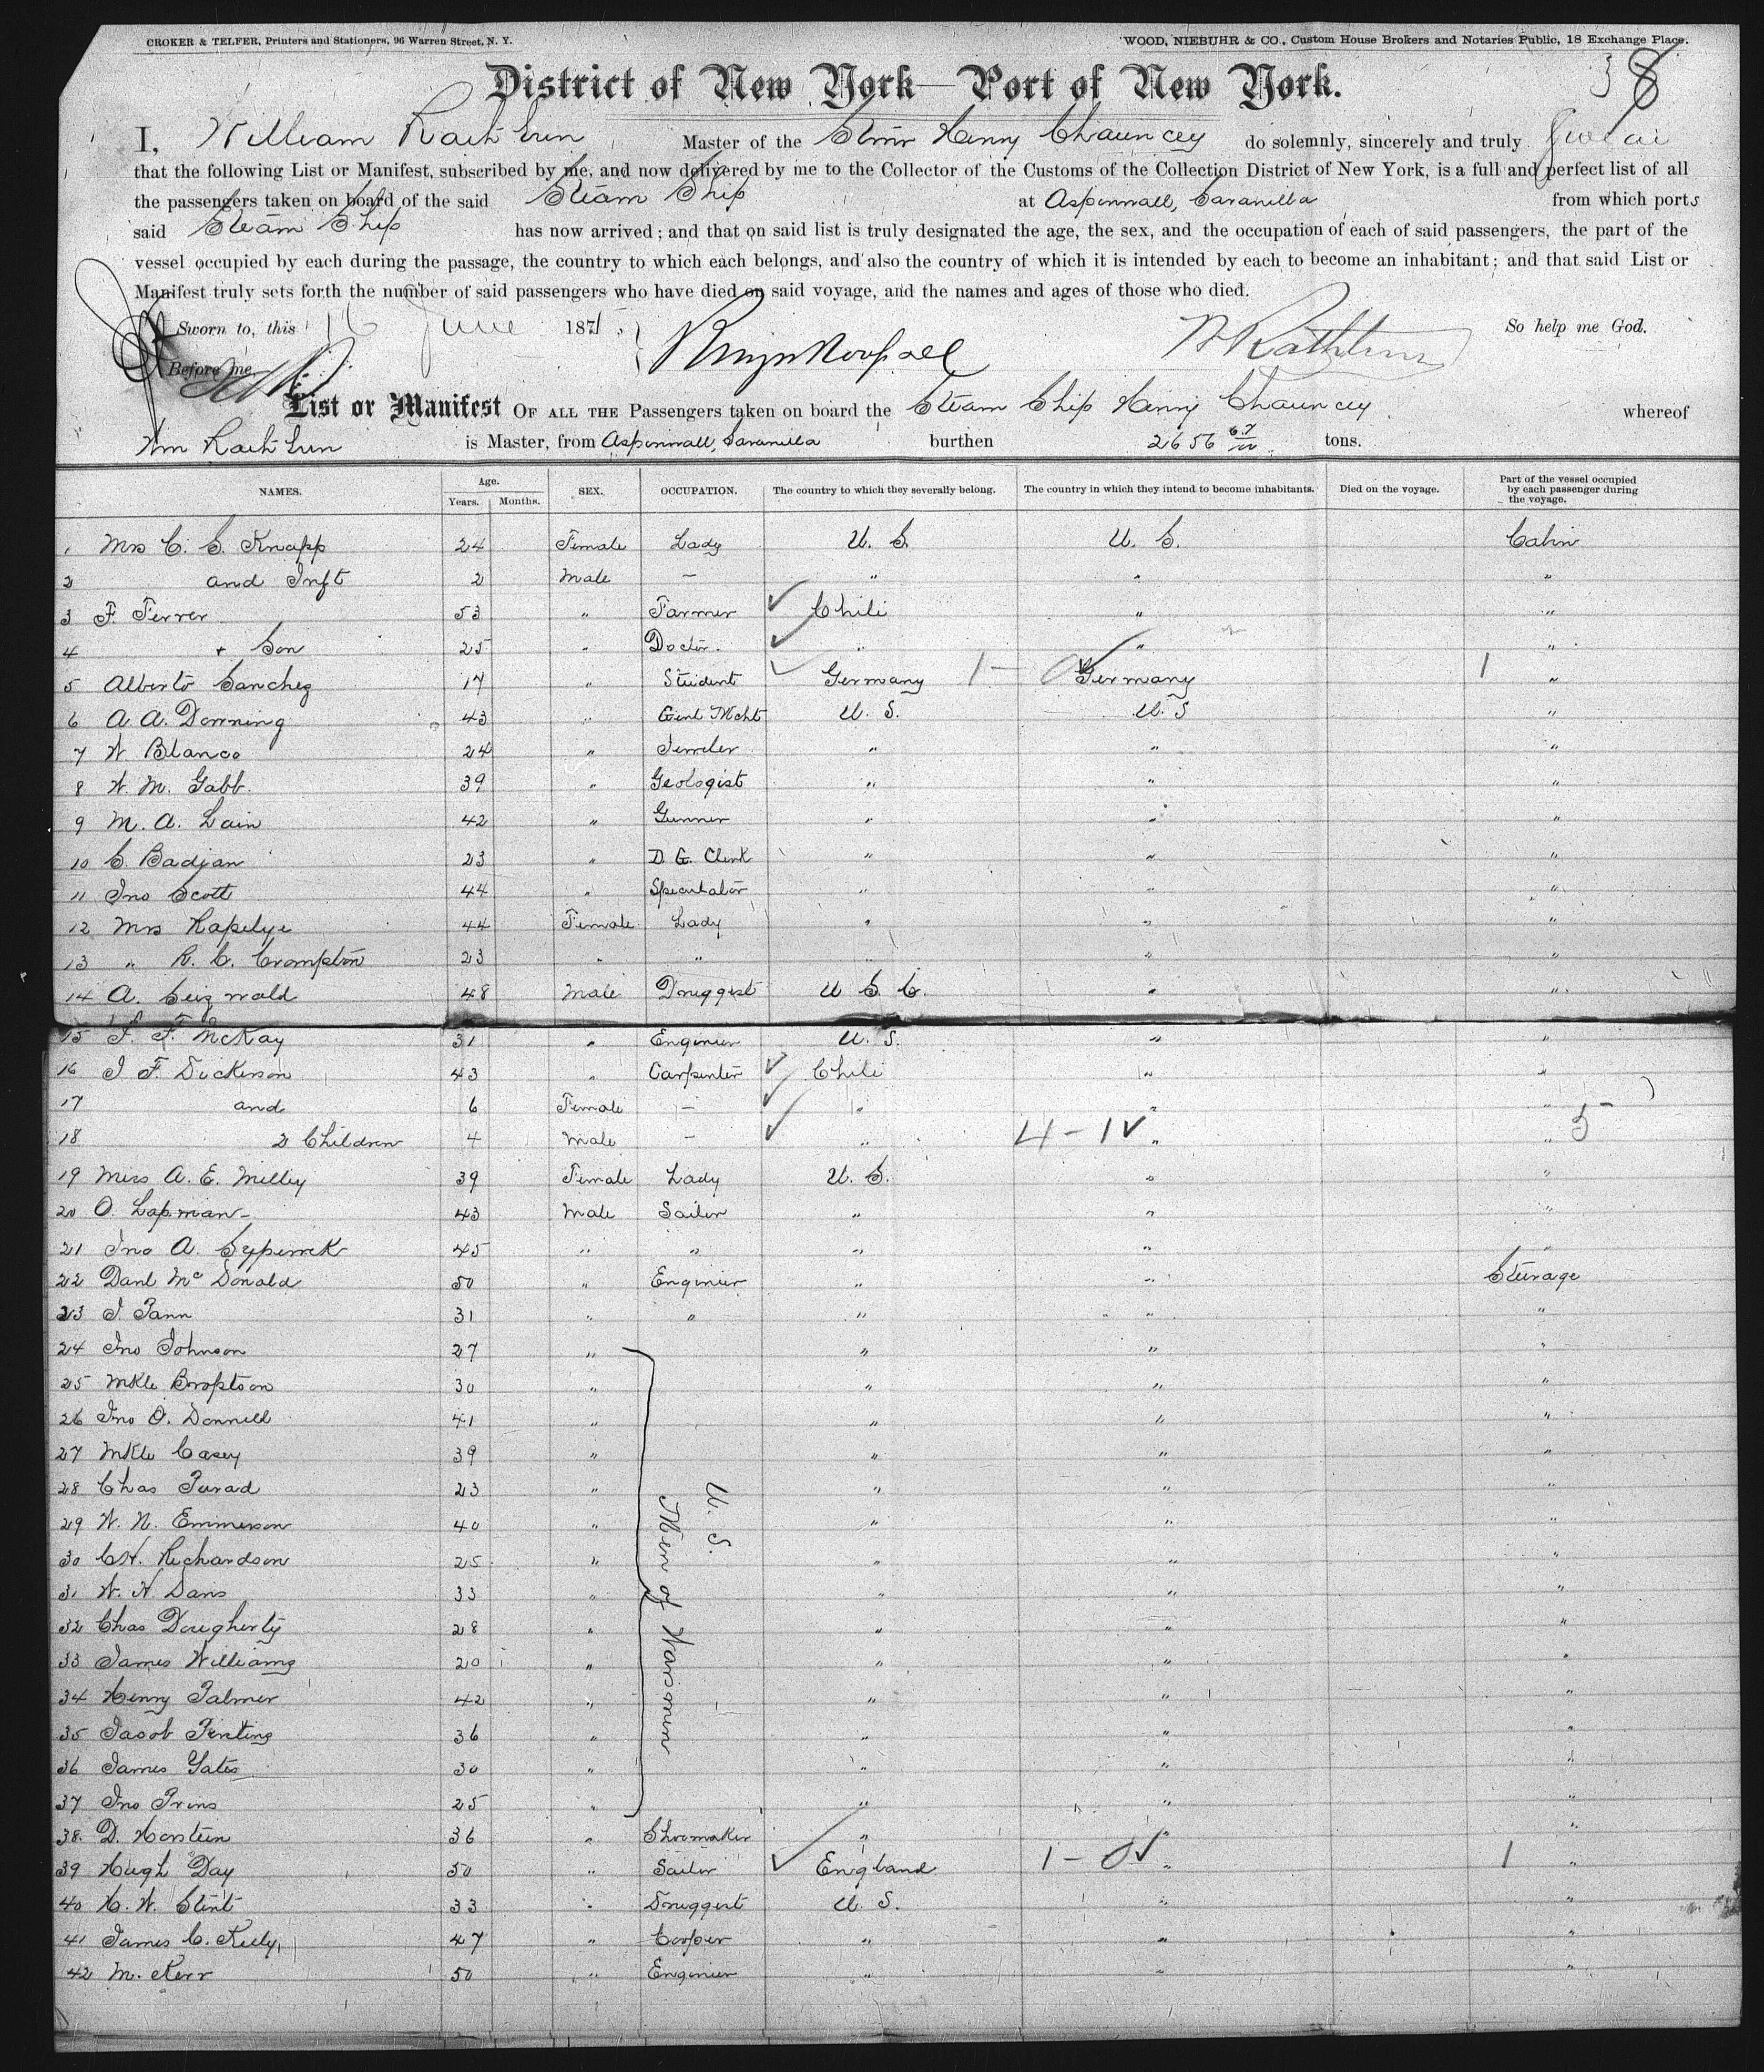 CROKER & TELFER, Printers and Stationers, 96 Warren Street, N. Y. WOOD, NIEBUHR & CO., Custom House Brokers and Notaries Public, 18 Exchange Place.
38
District of New York—Port of New York.
I, William Rathbun Master of the Stmr Henry Chauncey do solemnly, sincerely and truly swear
that the following List or Manifest, subscribed by me, and now delivered by me to the Collector of the Customs of the Collection District of New York, is a full and perfect list of all
the passengers taken on board of the said Steam Ship at Aspinwall, Savanilla from which ports
said Steam Ship has now arrived; and that on said list is truly designated the age, the sex, and the occupation of each of said passengers, the part of the
vessel occupied by each during the passage, the country to which each belongs, and also the country of which it is intended by each to become an inhabitant; and that said List or
Manifest truly sets forth the number of said passengers who have died on said voyage, and the names and ages of those who died.
Sworn to, this 16 June 1871, W Rathbun So help me God.
Before me,
List or Manifest OF ALL THE Passengers taken on board the Steam Ship Henry Chauncey whereof
Wm Rathbun is Master, from Aspinwall, Savanilla burthen 2656 67/100 tons.
NAMES. Age. Years. Months. SEX. OCCUPATION. The country to which they severally belong. The country in which they intend to become inhabitants. Died on the voyage. Part of the vessel occupied by each passenger during the voyage.
1 Mrs C. S. Knapp 24 Female Lady U. S. U. S. Cabin
2 and Inft 2 Male — " " "
3 F. Ferrer 53 " Farmer ✓ Chili " "
4 + Son 25 " Doctor ✓ " " "
5 Alberto Sanchez 17 " Student ✓ Germany 1 — 0 ✓ Germany 1 "
6 A. A. Downing 43 " Genl Mcht U. S. U. S "
7 W Blanco 24 " Jeweler " " "
8 W. M. Gabb 39 " Geologist " " "
9 M. A. Lain 42 " Gunner " " "
10 S. Badjan 23 " D. G. Clerk " " "
11 Jno Scott 44 " Speculator " " "
12 Mrs Rapelye 44 Female Lady " " "
13 " R. C. Crompton 23 " " " " "
14 A. Seigwald 48 Male Druggist U S C. " "
15 J. F. McKay 31 " Enginier U. S. " "
16 J F. Dickerson 43 " Carpenter ✓ Chili " "
17 and 6 Female — ✓ " " "
18 2 Children 4 Male — ✓ " 4 - 1 ✓ " " 5
19 Miss A. E. Milley 39 Female Lady U. S. " "
20 O. Lapman 43 Male Sailor " " "
21 Jno A. 45 " " " " "
22 Danl Mc Donald 50 " Enginier " " Sturage
23 J. Tann 31 " " " " "
24 Jno Johnson 27 " " " "
25 Mkle 30 " " " "
26 Jno O. Donnell 41 " " " "
27 Mkle Casey 39 " " " "
28 Chas 23 " " " "
U. S. Men of Warsmen
29 W. N. Emmerson 40 " " " "
30 CH. Richardson 25 " " " "
31 W. H. Davis 33 " " " "
32 Chas Dougherty 28 " " " "
33 James Williams 20 " " " "
34 Henry Palmer 42 " " " "
35 Jacob 36 " " " "
36 James Yates 30 " " " "
37 Jno 25 " " " "
38. D. Horstein 36 " Shoemaker " " "
39 Hugh Day 50 " Sailor ✓ England 1 - 0 ✓ " 1 "
40 H. W. Stint 33 " Druggist U. S. " "
41 James C. Kelly 47 " Cooper " " "
42 M. Kerr 50 " Enginier " " "